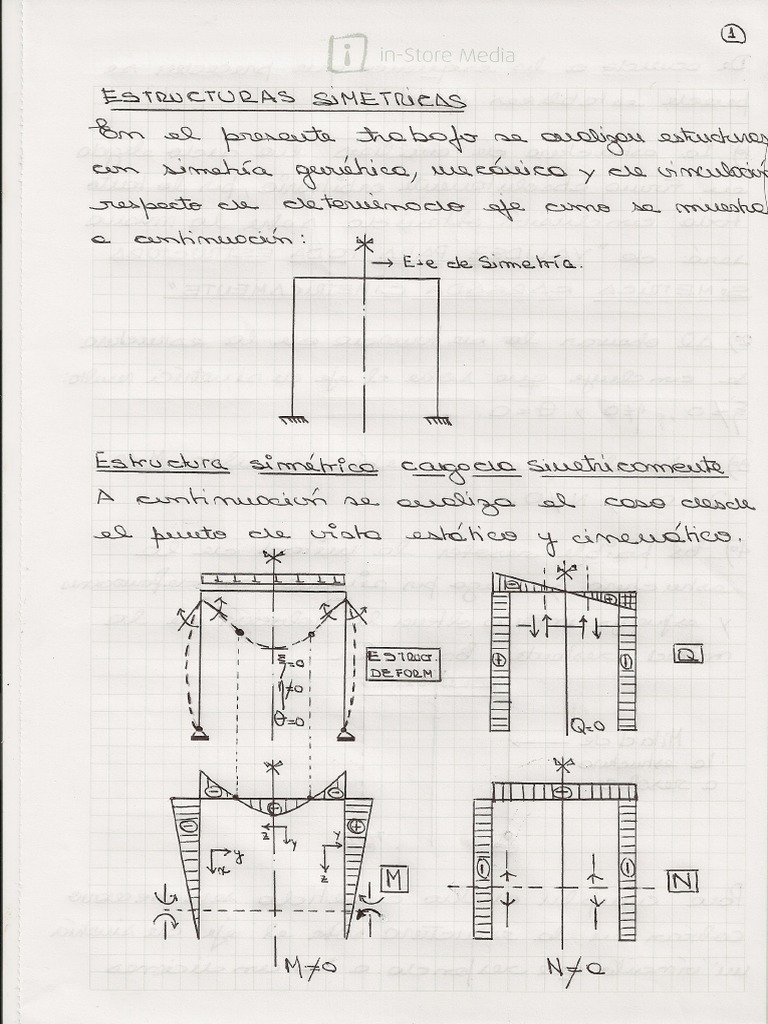 1
in-Store Media
ESTRUCTURAS SIMETRICAS
En el presente trabajo se analizan estructuras
con simetría geométrica, mecánica y de vinculación
respecto de determinado eje como se muestra
a continuación:
→ Eje de Simetría.
Estructura simétrica cargada simetricamente
A continuación se analiza el caso desde
el punto de vista estático y cinemático.
ξ=0
η≠0
θ=0
ESTRUCT.
DEFORM
Q
Q=0
z
y
y
x
y
z
M
M≠0
N
N≠0